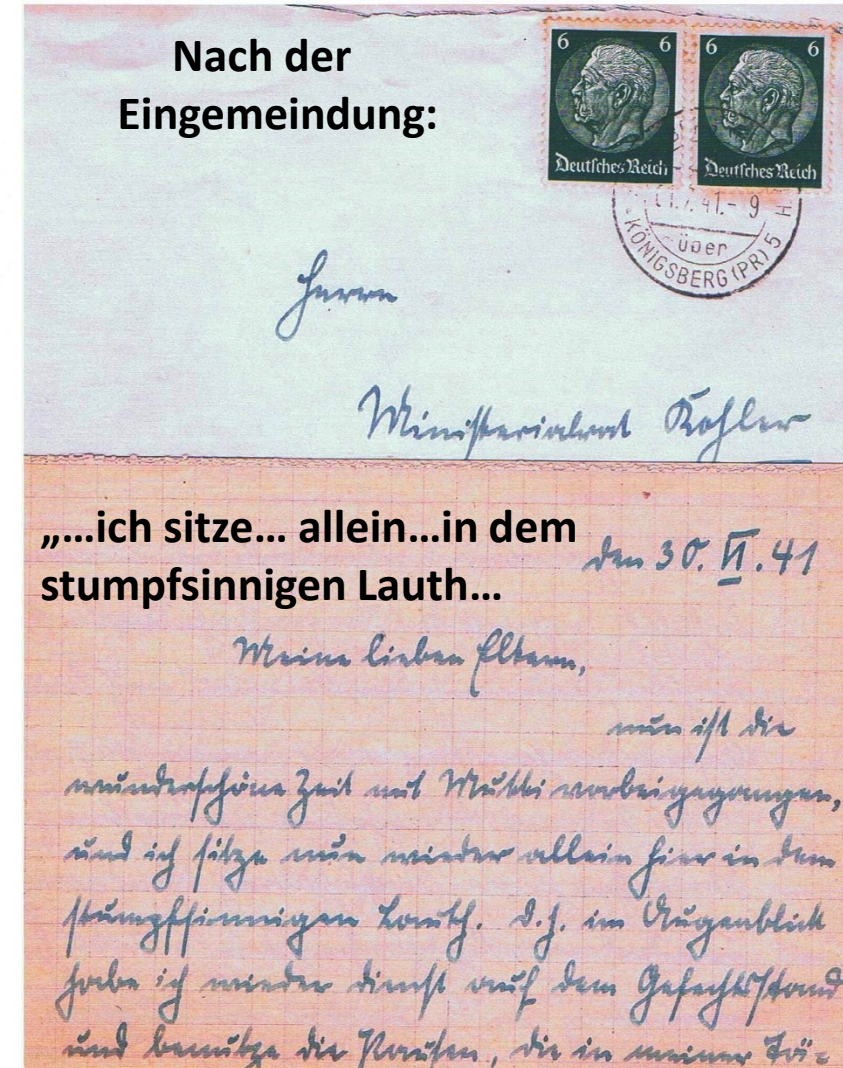 Nach der
Eingemeindung:
6 6 6 6
Deutsches Reich Deutsches Reich
1.7.41.-9
über
KÖNIGSBERG (PR) 5
Herrn
Ministerialrat Kohler
„…ich sitze… allein…in dem
stumpfsinnigen Lauth…
den 30. VI. 41
Meine lieben Eltern,
nun ist die
wunderschöne Zeit mit Mutti vorbeigegangen,
und ich sitze nun wieder allein hier in dem
stumpfsinnigen Lauth. D.h. im Augenblick
habe ich wieder dienst auf dem Gefechtsstand
und benutze die Pausen, die in meiner Tä-